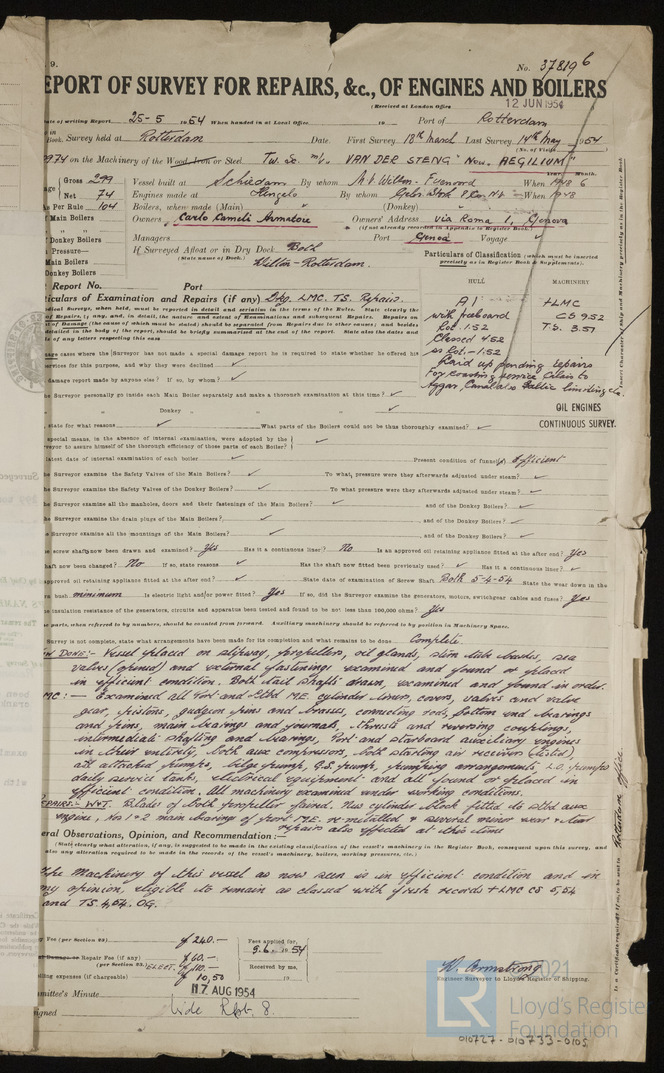 9.
No. 37819 6
EPORT OF SURVEY FOR REPAIRS, &c., OF ENGINES AND BOILERS
(Received at London Office 12 JUN 1954
ate of writing Report 25-5 1954 When handed in at Local Office 19 Port of Rotterdam
Book. Survey held at Rotterdam Date. First Survey 18th March Last Survey 14th May 1954
(No. of Visits
on the Machinery of the Wood, Iron or Steel Tw. Sc. m/v. VAN DER STENG "Now. AEGILIUM"
Gross 299 Vessel built at Schiedam By whom When 1948 6
Net 74 Engines made at Hengelo By whom When 1948
As Per Rule 104 Boilers, when made (Main) (Donkey)
Main Boilers Owners Carlo Cameli Armatore Owners' Address via Roma 1, Genova
(if not already recorded in Appendix to Register Book.)
Donkey Boilers Managers Port Genoa Voyage
Pressure— If Surveyed Afloat or in Dry Dock Both
(State name of Dock.) Wilton-Rotterdam.
Main Boilers
Donkey Boilers
Particulars of Classification (which must be inserted precisely as in Register Book & Supplements).
HULL MACHINERY
Report No. Port
ticulars of Examination and Repairs (if any) Dkg. LMC. TS. Repairs.
A1 +LMC
with freeboard CS 9.52
Rot. 1.52 T.S. 3.51
Classed 4.52
ss Rot. - 1.52
Laid up pending repairs
OIL ENGINES
CONTINUOUS SURVEY.
age cases where the Surveyor has not made a special damage report he is required to state whether he offered his
services for this purpose, and why they were declined
damage report made by anyone else? If so, by whom?
he Surveyor personally go inside each Main Boiler separately and make a thorough examination at this time?
" Donkey " " "
, state for what reasons What parts of the Boilers could not be thus thoroughly examined?
special means, in the absence of internal examination, were adopted by the
veyor to assure himself of the thorough efficiency of those parts of each Boiler?
latest date of internal examination of each boiler Present condition of funnel(s) efficient
he Surveyor examine the Safety Valves of the Main Boilers? To what pressure were they afterwards adjusted under steam?
he Surveyor examine the Safety Valves of the Donkey Boilers? To what pressure were they afterwards adjusted under steam?
he Surveyor examine all the manholes, doors and their fastenings of the Main Boilers? , and of the Donkey Boilers?
he Surveyor examine the drain plugs of the Main Boilers? , and of the Donkey Boilers?
he Surveyor examine all the mountings of the Main Boilers? , and of the Donkey Boilers?
he screw shafts now been drawn and examined? Yes Has it a continuous liner? No Is an approved oil retaining appliance fitted at the after end? Yes
haft now been changed? No If so, state reasons Has the shaft now fitted been previously used? Has it a continuous liner?
approved oil retaining appliance fitted at the after end? State date of examination of Screw Shaft Both 5-4-54 State the wear down in the
rn bush minimum Is electric light and/or power fitted? Yes If so, did the Surveyor examine the generators, motors, switchgear cables and fuses? Yes
he insulation resistance of the generators, circuits and apparatus been tested and found to be not less than 100,000 ohms? Yes
e parts, when referred to by numbers, should be counted from forward. Auxiliary machinery should be referred to by position in Machinery Space.
Survey is not complete, state what arrangements have been made for its completion and what remains to be done Complete.
W DONE:- Vessel placed on slipway, propellers, oil glands, stern tube bushes, sea
valves (opened) and external fastenings examined and found or placed
in efficient condition. Both tail shafts drawn, examined and found in order.
MC:— Examined all Port and Stbd M.E. cylinder liners, covers, valves and valve
gear, pistons, gudgeon pins and brasses, connecting rods, bottom end bearings
and pins, main bearings and journals, thrusts and reversing couplings,
intermediate shafting and bearings, Port and starboard auxiliary engines
in their entirety, both aux compressors, both starting air receivers (tested),
all attached pumps, bilge pump, G.S. pump, pumping arrangements, L.O. pumps
daily service tanks, electrical equipment and all found or placed in
efficient condition. All machinery examined under working conditions.
EPAIRS:- W&T. Blades of both propellers faired. New cylinder block fitted to stbd aux
engine, No 1 & 2 main bearings of port M.E. re-metalled & several minor wear & tear
repairs also effected at this time
eral Observations, Opinion, and Recommendation:—
(State clearly what alteration, if any, is suggested to be made in the existing classification of the vessel's machinery in the Register Book, consequent upon this survey, and
also any alteration required to be made in the records of the vessel's machinery, boilers, working pressures, etc.)
The Machinery of this vessel as now seen is in efficient condition and in
my opinion, eligible to remain as classed with fresh records +LMC CS 5,54
and TS 4,54. OG.
y Fee (per Section 23) f 240.— Fees applied for,
Damage or Repair Fee (if any) f 60.— 9.6. 1954
(per Section 23.) ELECT. f 110.— Received by me,
lling expenses (if chargeable) f 10,50 19
W. Armstrong
Engineer Surveyor to Lloyd's Register of Shipping.
mittee's Minute 17 AUG 1954
signed Vide Rpt. 8.
© 2021
LR
Lloyd's Register
Foundation
010727-010733-0105
Rotterdam office